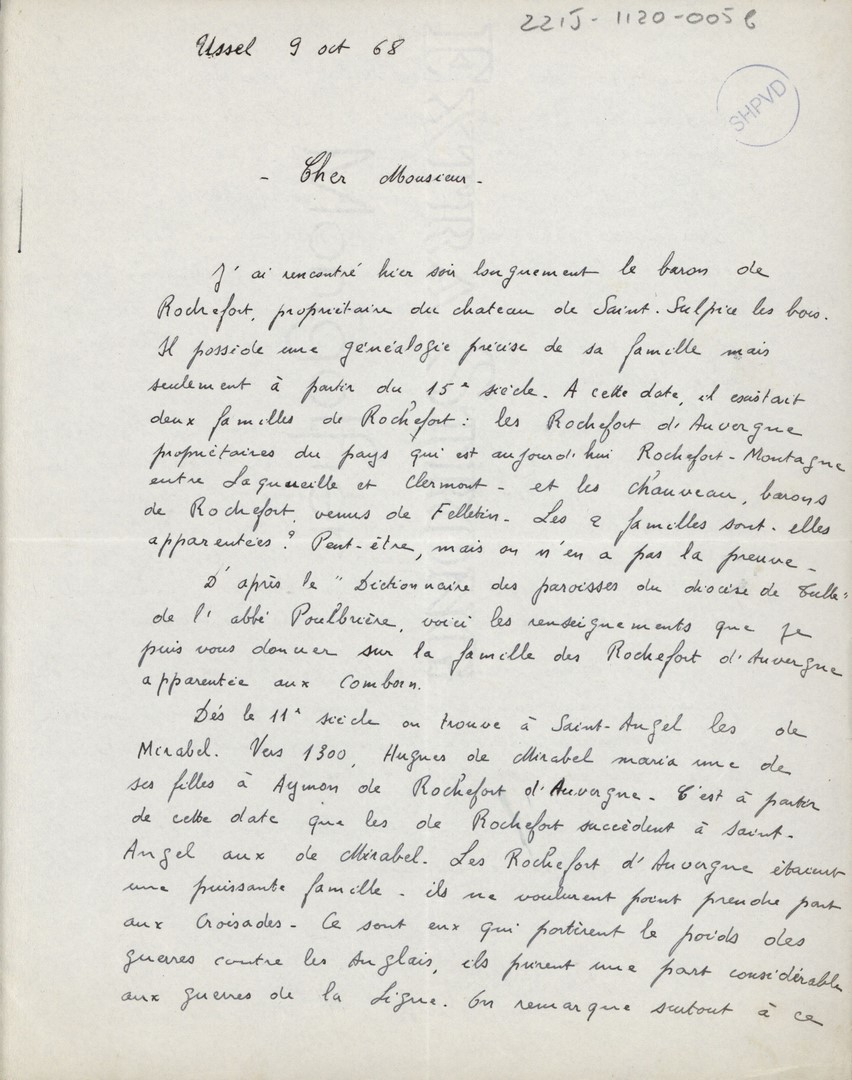 221J-1120-005b
Ussel 9 oct 68
SHPVD
- Cher Monsieur -
J'ai rencontré hier soir longuement le baron de
Rochefort, propriétaire du chateau de Saint-Sulpice les bois.
Il possède une généalogie précise de sa famille mais
seulement à partir du 15e siècle. A cette date, il existait
deux familles de Rochefort : les Rochefort d'Auvergne
propriétaires du pays qui est aujourd'hui Rochefort-Montagne
entre Laqueuille et Clermont - et les Chauveau, barons
de Rochefort, venus de Felletin. Les 2 familles sont-elles
apparentées ? Peut-être, mais on n'en a pas la preuve -
D'après le "Dictionnaire des paroisses du diocèse de Tulle"
de l'abbé Poulbrière, voici les renseignements que je
puis vous donner sur la famille des Rochefort d'Auvergne
apparentée aux Comborn.
Dés le 11e siècle on trouve à Saint-Angel les de
Mirabel. Vers 1300, Hugues de Mirabel maria une de
ses filles à Aymon de Rochefort d'Auvergne - C'est à partir
de cette date que les de Rochefort succèdent à Saint-
Angel aux de Mirabel. Les Rochefort d'Auvergne étaient
une puissante famille - ils ne voulurent point prendre part
aux Croisades - Ce sont eux qui portèrent le poids des
guerres contre les Anglais, ils prirent une part considérable
aux guerres de la Ligue. On remarque surtout à ce